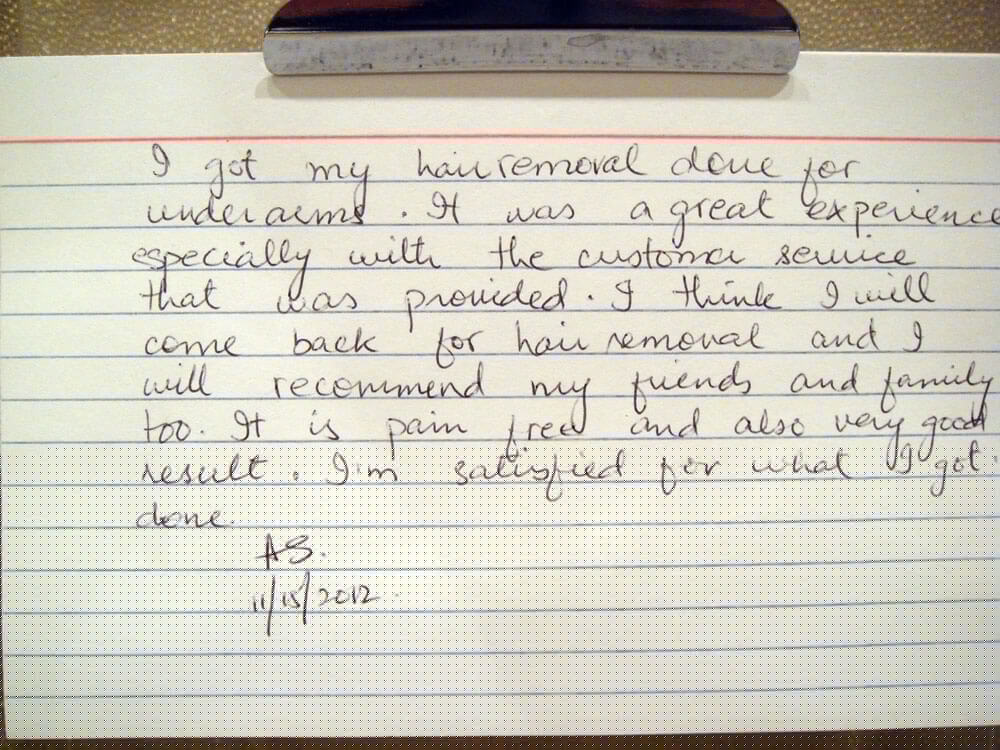 I got my hair removal done for
underarms. It was a great experience
especially with the customer service
that was provided. I think I will
come back for hair removal and I
will recommend my friends and family
too. It is pain free and also very good
result. I'm satisfied for what I got
done.
AS.
11/15/2012